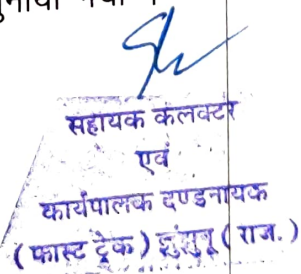 सहायक कलक्टर
एवं
कार्यपालक दण्डनायक
( फास्ट ट्रेक ) झुंझुनू ( राज. )